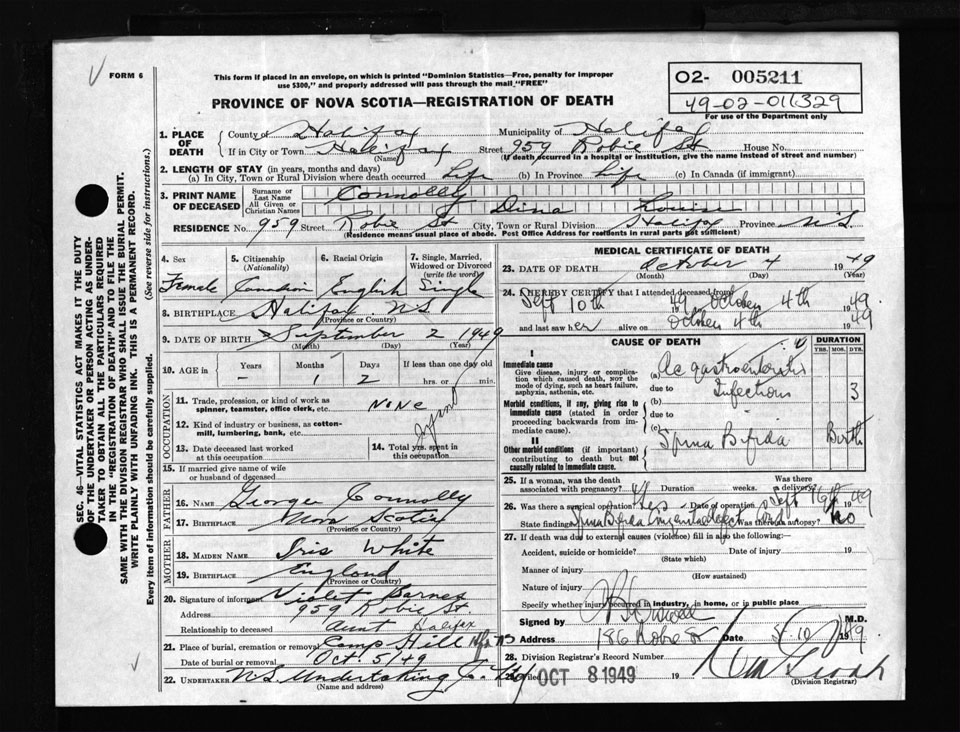 FORM 6
This form if placed in an envelope, on which is printed "Dominion Statistics—Free, penalty for improper
use $300," and properly addressed will pass through the mail "FREE"
O2- 005211
49-02-011329
For use of the Department only
PROVINCE OF NOVA SCOTIA—REGISTRATION OF DEATH
1. PLACE OF DEATH
County of Halifax Municipality of Halifax
If in City or Town Halifax Street 959 Robie St House No.
(Name) (If death occurred in a hospital or institution, give the name instead of street and number)
2. LENGTH OF STAY (in years, months and days)
(a) In City, Town or Rural Division where death occurred Life (b) In Province Life (c) In Canada (if immigrant)
3. PRINT NAME OF DECEASED
Surname or Last Name Connolly
All Given or Christian Names Dina Louise
RESIDENCE No. 959 Street Robie St City, Town or Rural Division Halifax Province N.S.
(Residence means usual place of abode. Post Office Address for residents in rural parts not sufficient)
SEC. 46—VITAL STATISTICS ACT MAKES IT THE DUTY
OF THE UNDERTAKER OR PERSON ACTING AS UNDER-
TAKER TO OBTAIN ALL THE PARTICULARS REQUIRED
IN THE "REGISTRATION OF DEATH" AND TO FILE THE
SAME WITH THE DIVISION REGISTRAR WHO SHALL ISSUE THE BURIAL PERMIT.
WRITE PLAINLY WITH UNFADING INK. THIS IS A PERMANENT RECORD.
Every item of information should be carefully supplied. (See reverse side for instructions.)
4. Sex Female
5. Citizenship (Nationality) Canadian
6. Racial Origin English
7. Single, Married, Widowed or Divorced (write the word) Single
8. BIRTHPLACE Halifax N.S.
(Province or Country)
9. DATE OF BIRTH September 2 1949
(Month) (Day) (Year)
10. AGE in Years Months Days If less than one day old
- 1 2 hrs. or min.
OCCUPATION
11. Trade, profession, or kind of work as
spinner, teamster, office clerk, etc. None
12. Kind of industry or business, as cotton-
mill, lumbering, bank, etc.
13. Date deceased last worked
at this occupation
14. Total yrs. spent in
this occupation
15. If married give name of wife
or husband of deceased
FATHER
16. NAME George Connolly
17. BIRTHPLACE Nova Scotia
(Province or Country)
MOTHER
18. MAIDEN NAME Iris White
19. BIRTHPLACE England
(Province or Country)
20. Signature of informant Violet Barnes
Address 959 Robie St.
Relationship to deceased Aunt Halifax
21. Place of burial, cremation or removal Camp Hill Hfx NS
Date of burial or removal Oct. 5/49
22. UNDERTAKER N.S. Undertaking Co. Ltd
(Name and address)
MEDICAL CERTIFICATE OF DEATH
23. DATE OF DEATH October 4 1949
(Month) (Day) (Year)
24. I HEREBY CERTIFY that I attended deceased from
Sept 10th 49 October 4th 1949
and last saw her alive on October 4th 1949
CAUSE OF DEATH DURATION
YRS. MOS. DYS.
I
Immediate cause
Give disease, injury or complica-
tion which caused death, NOT the
mode of dying, such as heart failure,
asphyxia, asthenia, etc.
(a) Ac gastroenteritis
due to Infections 3
Morbid conditions, if any, giving rise to
immediate cause (stated in order
proceeding backwards from im-
mediate cause).
(b)
due to
(c)
II
Other morbid conditions (if important)
contributing to death but not
causally related to immediate cause.
Spina Bifida Birth
25. If a woman, was the death
associated with pregnancy? Duration weeks Was there
a delivery?
26. Was there a surgical operation? Yes Date of operation Sept 1949
State findings Spina Bifida Was there an autopsy? No
27. If death was due to external causes (violence) fill in also the following:—
Accident, suicide or homicide? Date of injury 19
(State which)
Manner of injury
(How sustained)
Nature of injury
Specify whether injury occurred in industry, in home, or in public place
Signed by M.D.
Address 186 Robie St Date 1949
28. Division Registrar's Record Number
Filed OCT 8 1949 19
(Division Registrar)